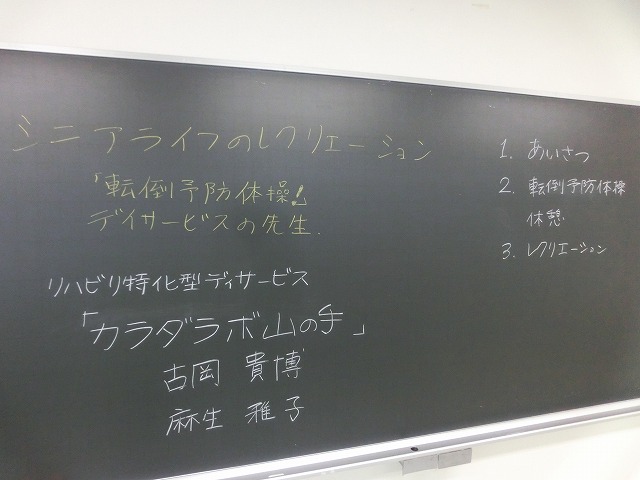 シニアライフのレクリエーション
「転倒予防体操」!
デイサービスの先生.
リハビリ特化型デイサービス
「カラダラボ山の手」
古岡 貴博
麻生 雅子
1. あいさつ
2. 転倒予防体操
休憩
3. レクリエーション